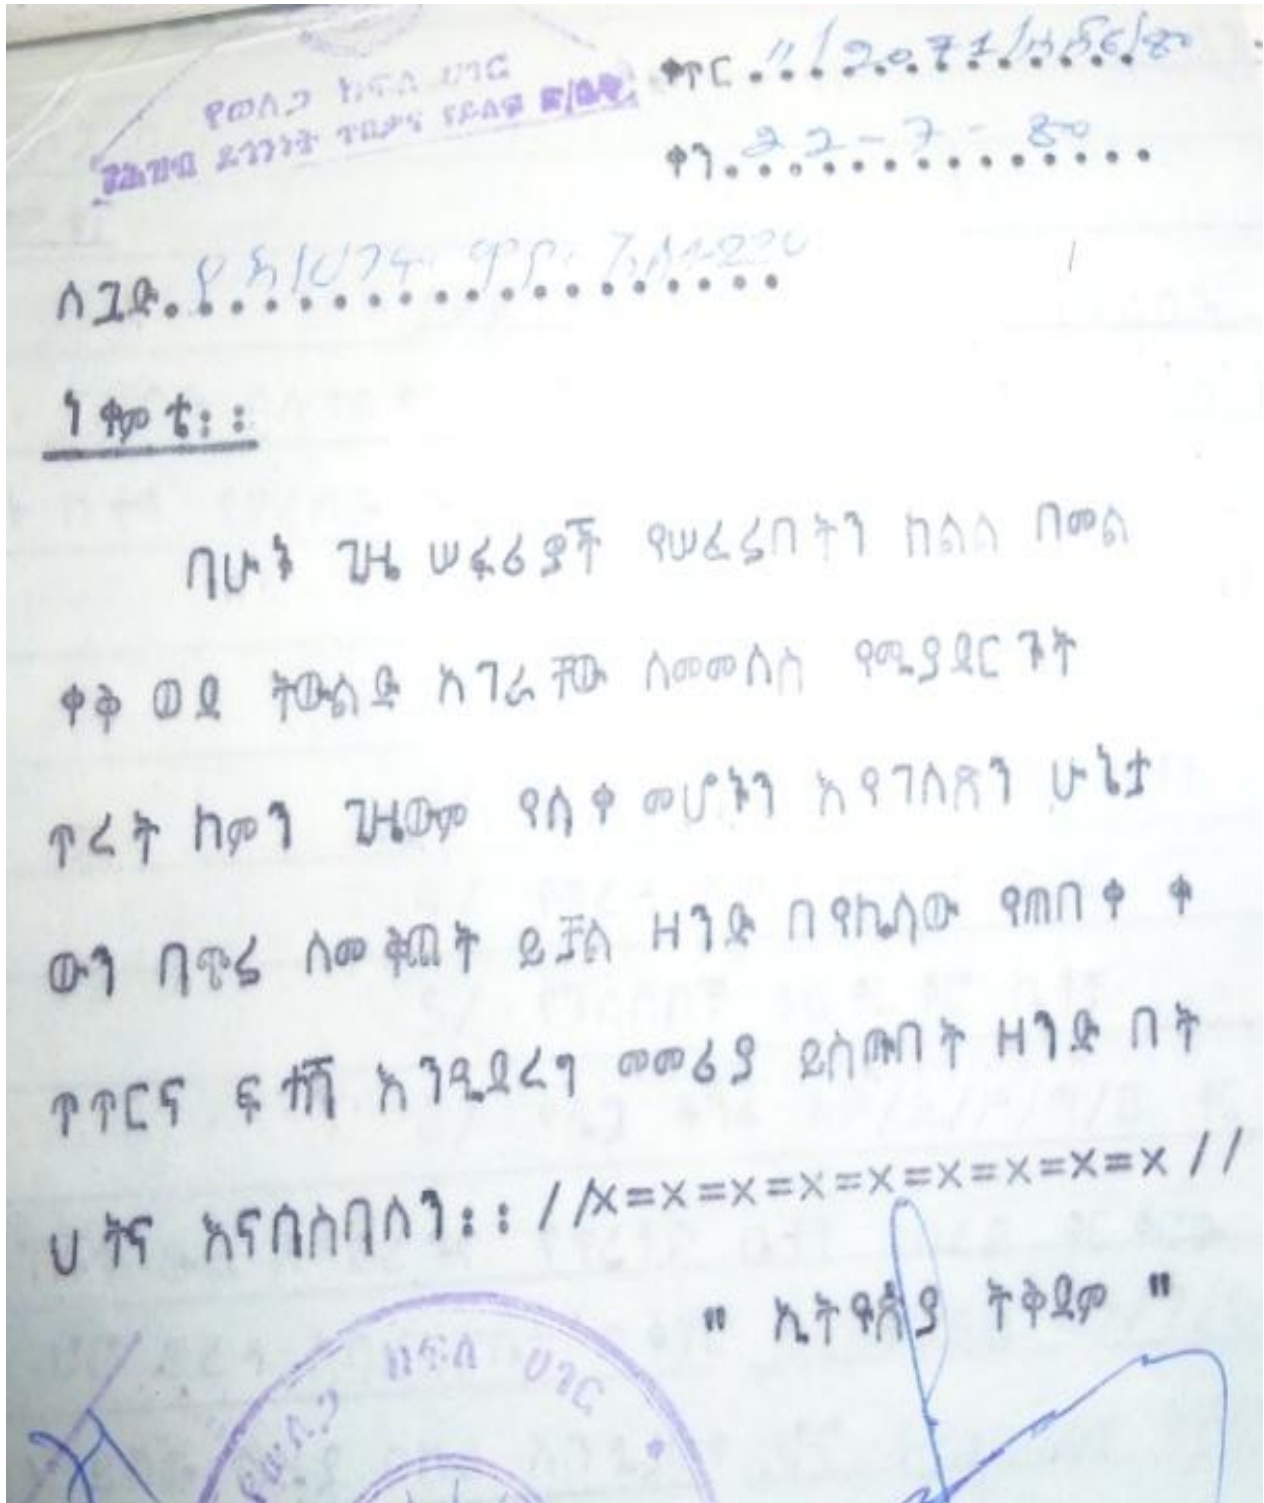 የወለጋ ክፍለ ሀገር
የሕዝብ ደኅንነት ጥበቃና
ቀጥር
ቀን 22-7-80
ለጓድ
ነቀምቴ፡፡
ባሁኑ ጊዜ ሠፋሪዎች የሠፈሩበትን ክልል በመል
ቀቅ ወደ ትውልድ አገራቸው ለመመለስ የሚያደርጉት
ጥረት ከምን ጊዜውም የላቀ መሆኑን እየገለጽን ሁኔታ
ውን ባጭሩ ለመቅጨት ይቻል ዘንድ በየኬላው የጠበቀ ቁ
ጥጥርና ፍተሻ እንዲደረግ መመሪያ ይሰጥበት ዘንድ በት
ህትና እናሳስባለን፡፡ //x=x=x=x=x=x=x=x=x//
" ኢትዮጵያ ትቅደም "
የወለጋ ክፍለ ሀገር